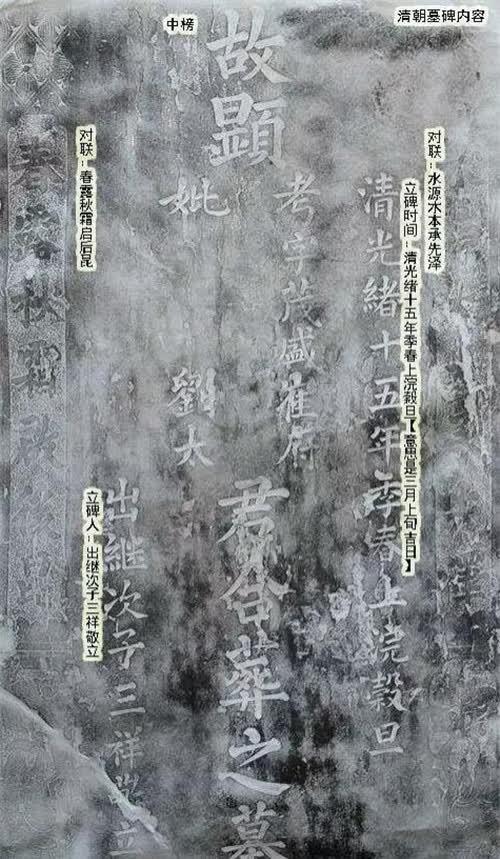 清朝墓碑内容
中榜
对联：水源木本承先泽
立碑时间：清光绪十五年季春上浣榖旦【意思是三月上旬吉日】
清光緒十五年季春上浣榖旦
故顯
考字茂盛崔府
妣
劉太
君合葬之墓
出继次子三祥敬立
立碑人：出继次子三祥敬立
对联：春露秋霜启后昆
春露秋霜